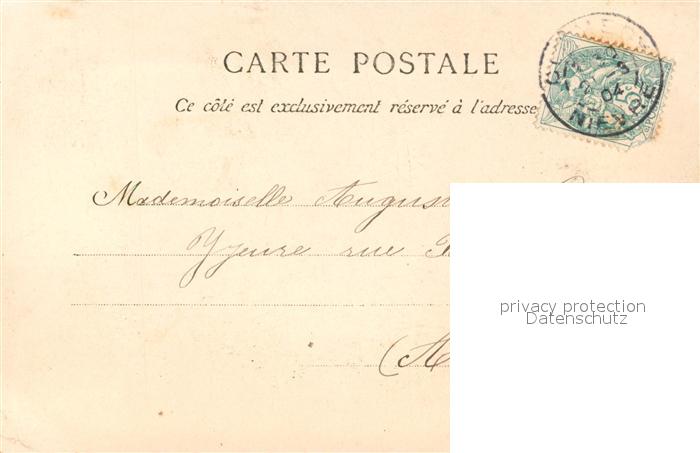 CARTE POSTALE
Ce côté est exclusivement réservé à l'adresse
NIEVRE
04
Mademoiselle
Yzeure rue
privacy protection
Datenschutz